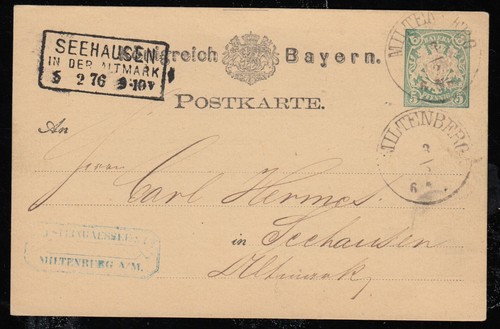 SEEHAUSEN
IN DER ALTMARK
5 2 76 9-10V
Königreich Bayern.
MILTENBERG
POSTKARTE.
MILTENBERG
3
An
Herrn
Carl Hermes
in Seehausen
Altmark
MILTENBERG A/M.